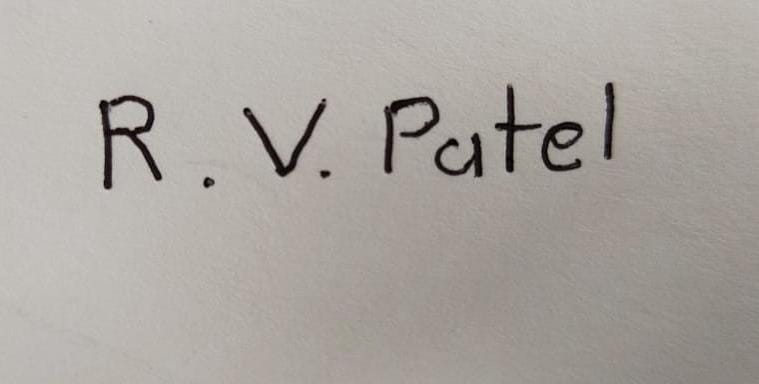 R. V. Patel